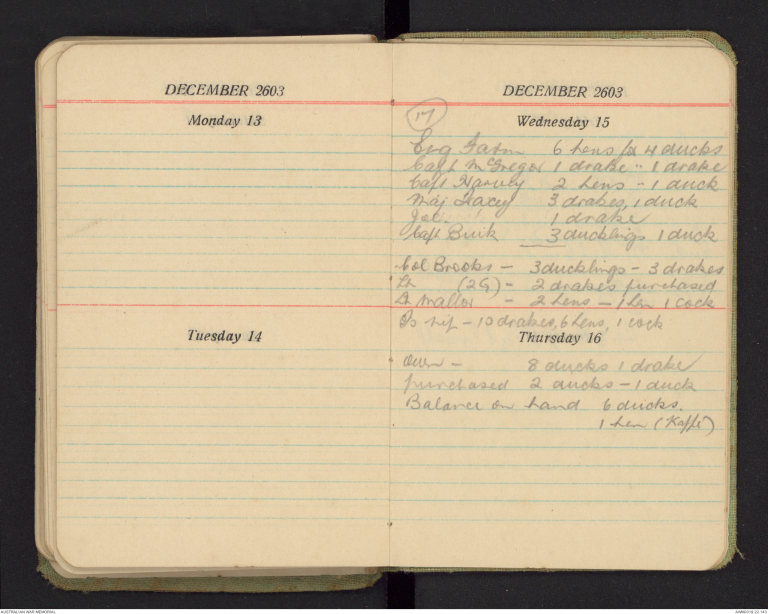 DECEMBER 2603
Monday 13
Tuesday 14
DECEMBER 2603
17
Wednesday 15
Egg Farm 6 hens for 4 ducks
Capt McGregor 1 drake - 1 drake
Capt Harvey 2 hens - 1 duck
Maj 3 drakes, 1 duck
1 drake
Capt 3 ducklings 1 duck
Col Brooks - 3 ducklings - 3 drakes
Lt (2G) - 2 drakes purchased
Lt Mallor - 2 hens - 1 hen 1 cock
10 drakes, 6 hens, 1 cock
Thursday 16
Own - 8 ducks 1 drake
purchased 2 ducks - 1 duck
Balance on hand 6 ducks.
1 hen (Kaffi)
AUSTRALIAN WAR MEMORIAL